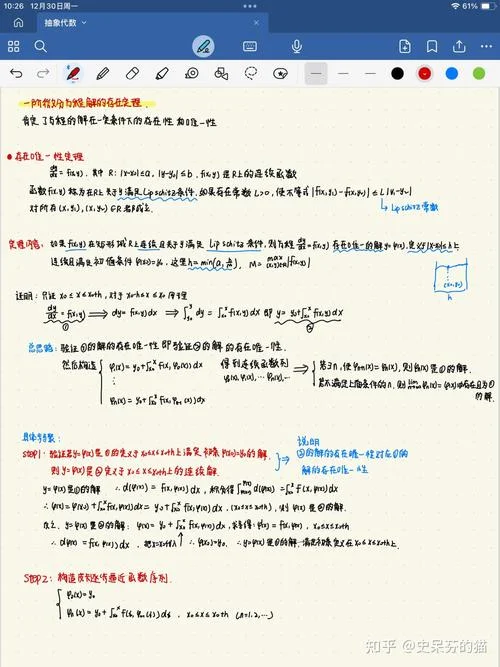 10:26 12月30日周一
61%
抽象代数
一阶微分方程解的存在定理.
肯定了方程的解在一定条件下的存在性和唯一性
存在唯一性定理
dy/dx = f(x,y), 其中 R: |x-x₀|≤a, |y-y₀|≤b, f(x,y) 是R上的连续函数
函数f(x,y) 称为在R上关于y满足Lipschitz条件, 如果存在常数 L>0, 使不等式 |f(x,y₁)-f(x,y₂)| ≤ L|y₁-y₂|
对所有 (x,y₁), (x,y₂) ∈R 都成立.
Lipschitz 常数
定理内容: 如果 f(x,y) 在矩形域R上连续且关于y满足 Lipschitz 条件, 则方程 dy/dx = f(x,y) 存在唯一的解 y=φ(x), 定义于|x-x₀|≤h上
连续且满足初值条件 φ(x₀)=y₀, 这里 h=min(a, b/M), M= max (x,y)∈R |f(x,y)|
(x₀,y₀)
h
证明: 只证 x₀ ≤ x ≤ x₀+h, 对于 x₀-h ≤ x ≤ x₀ 同理
dy/dx = f(x,y) ⟹ dy = f(x,y) dx ⟹ ∫ dy = ∫ f(x,y) dx 即 y = y₀+∫ f(x,y) dx
① ②
总思路: 验证①的解的存在唯一性 即验证②的解的存在唯一性.
然后构造 { φ₁(x) = y₀+∫ f(x, φ₀(x)) dx 得到连续函数列
⋮ φ₀(x), φ₁(x), ⋯ φₙ(x), ⋯
φₙ(x) = y₀+∫ f(x, φₙ₋₁(x)) dx
若∃n, 使 φₙ₊₁(x) = φₙ(x), 则 φₙ(x) 是②的解.
若不满足上面条件的n, 则 lim φₙ(x) = φ(x)
的解.
具体步骤:
step1: 验证若 y=φ(x) 是①的定义于 x₀≤x≤x₀+h上满足初值 φ(x₀)=y₀ 的解,
则 y=φ(x) 是②定义于 x₀≤x≤x₀+h 上的连续解.
说明
②的解的存在唯一性对应①的
解的存在唯一性
y=φ(x) 是①的解 ∴ d(φ(x)) = f(x, φ(x)) dx, 积分得 ∫ d(φ(x)) = ∫ f(x, φ(x)) dx
∴ φ(x) = φ(x₀) + ∫ f(x, φ(x)) dx = y₀ + ∫ f(x, φ(x)) dx, (x₀≤x≤x₀+h), 则 φ(x) 是②的解.
反之, y=φ(x) 是②的解: φ(x) = y₀ + ∫ f(x, φ(x)) dx, 求导得: φ'(x) = f(x, φ(x)), x₀≤x≤x₀+h
∴ d(φ(x)) = f(x, φ(x)) dx, 把x=x₀代入 ∴ φ(x₀)=y₀, ∴ y=φ(x) 是①的解. 满足初值定义在 x₀≤x≤x₀+h 上.
Step2: 构造皮卡逐步逼近函数序列.
{ φ₀(x) = y₀
φₙ(x) = y₀ + ∫ f(ξ, φₙ₋₁(ξ)) dξ, x₀≤x≤x₀+h (n=1,2,⋯)
知乎 @史呆芬的猫